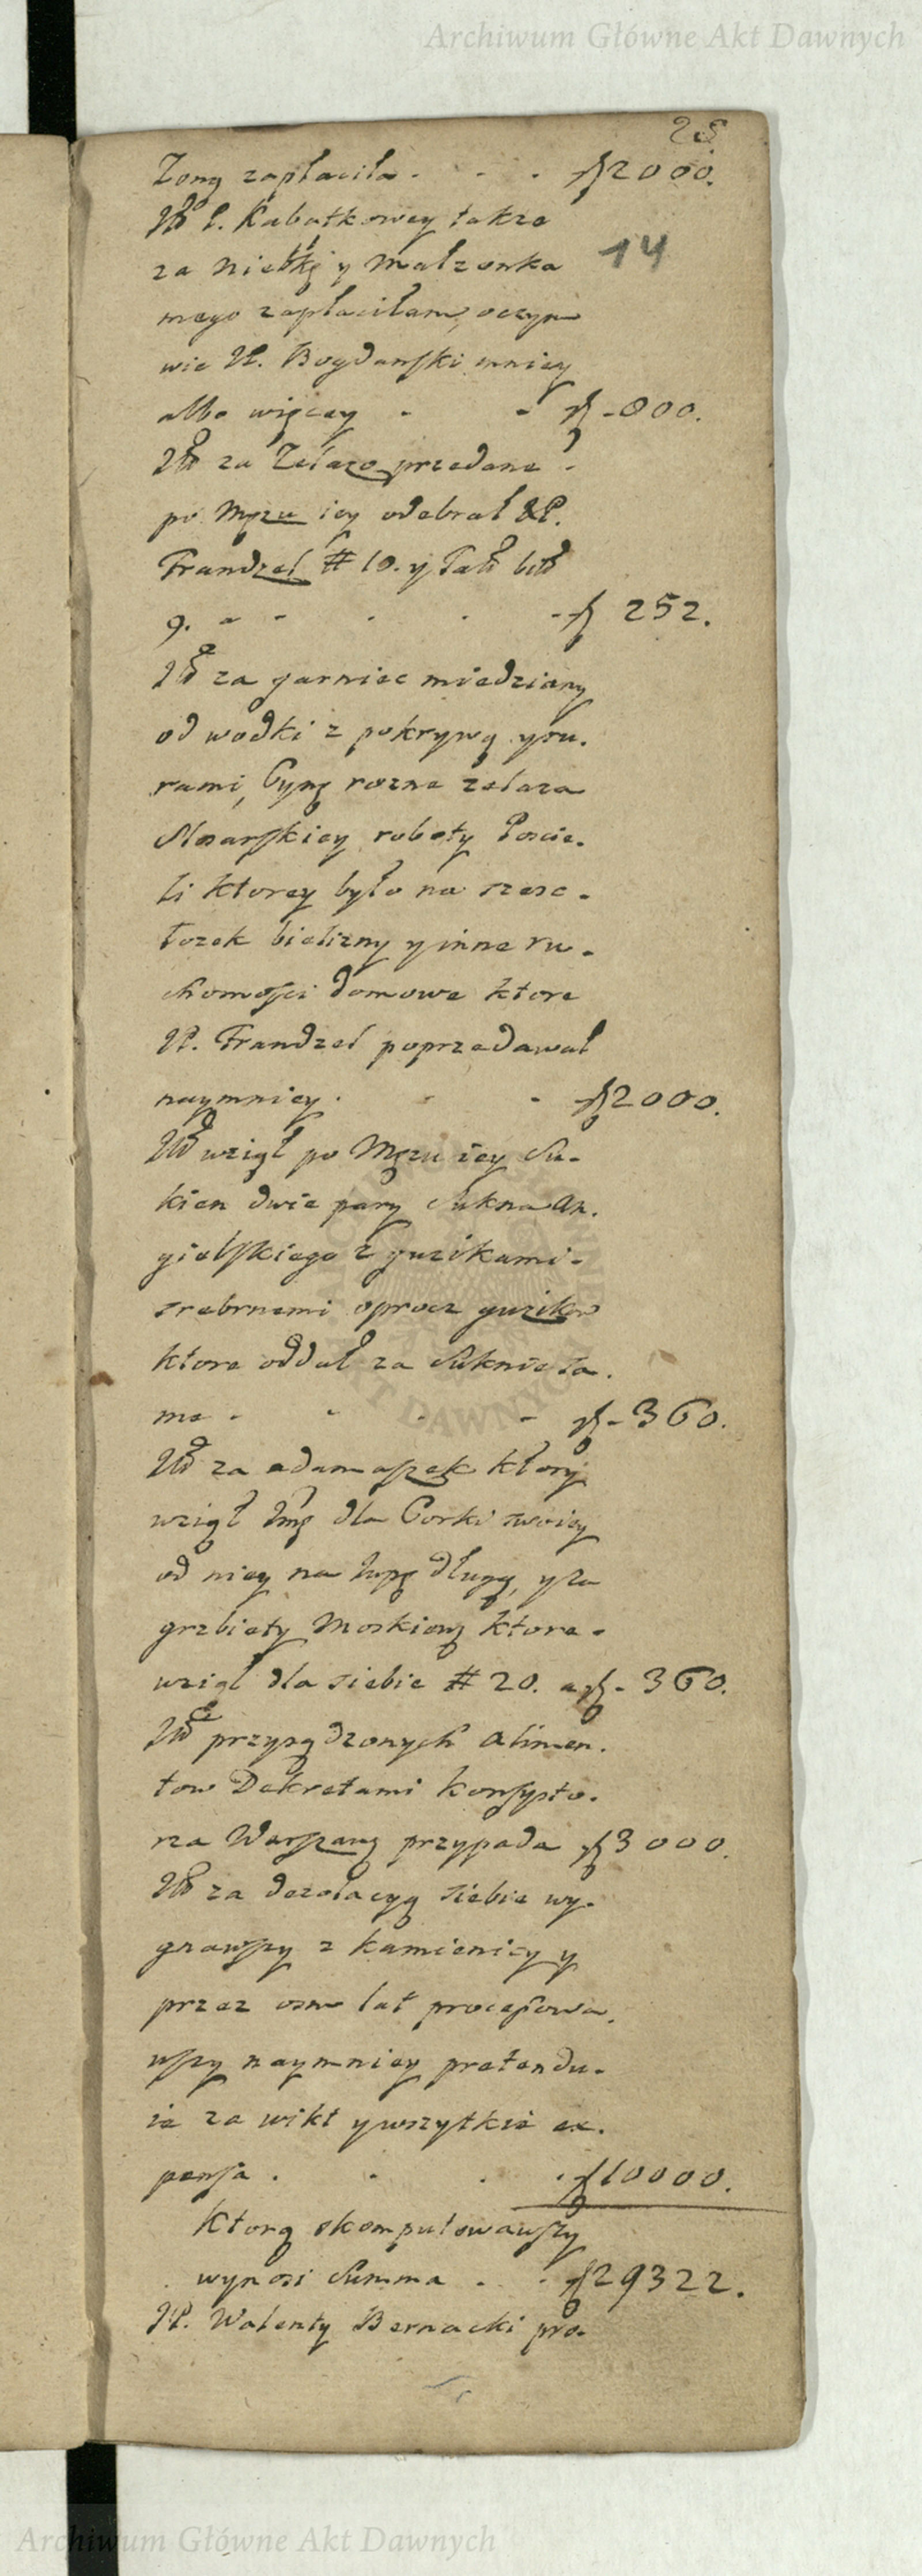 Archiwum Główne Akt Dawnych
28
Zony zapłaciła . . . f 2000.
Itd P. Kabatkowey takze
14
za niebkę y Małzonka
mego zapłaciłam, oczym
wie JP. Bogdanski mniey
albo więcey . . f - 800.
Itd za Zelazo przedane .
po Męzu iey odebrał JP.
Frandzel # 10. y Tall bitt
9. . . . f 252.
Itd za garniec miedziany
od wodki z pokrywą y ru.
rami, Cynę rozne zelaza
Slosarskiey roboty Poscie.
li ktorey było na szesc -
łozek bielizny y inne ru -
chomosci domowe ktore
JP. Frandzel poprzedawał
naymniey . . . f 2000.
Itd wziął po Męzu iey Su-
kien dwie pary Sukna An.
gielskiego z guzikami -
srebrnemi oprocz guzikow
ktore oddał za Suknie sa.
me - . . - f - 360.
Itd za adamaszek ktory
wziął Jmę dla Corki swoiey
od niey na Jupę długą, y za
grzbiety Moskiewz ktore -
wziął dla siebie # 20. a f - 360.
Itd przysądzonych alimen.
tow Dekretami Konsysto.
rza Warszawz przypada f 3000.
Itd za dezolacyą siebie wy-
gnawszy z kamienicy y
przez osm lat processowa.
wszy naymniey pretendu-
ie za wikt y wszytkie ex.
pensa . . . . f 10000.
Ktorą skomputowawszy
wynosi Summa . . f 29322.
JP. Walenty Bernacki pro-
DAWNYCH
Archiwum Główne Akt Dawnych